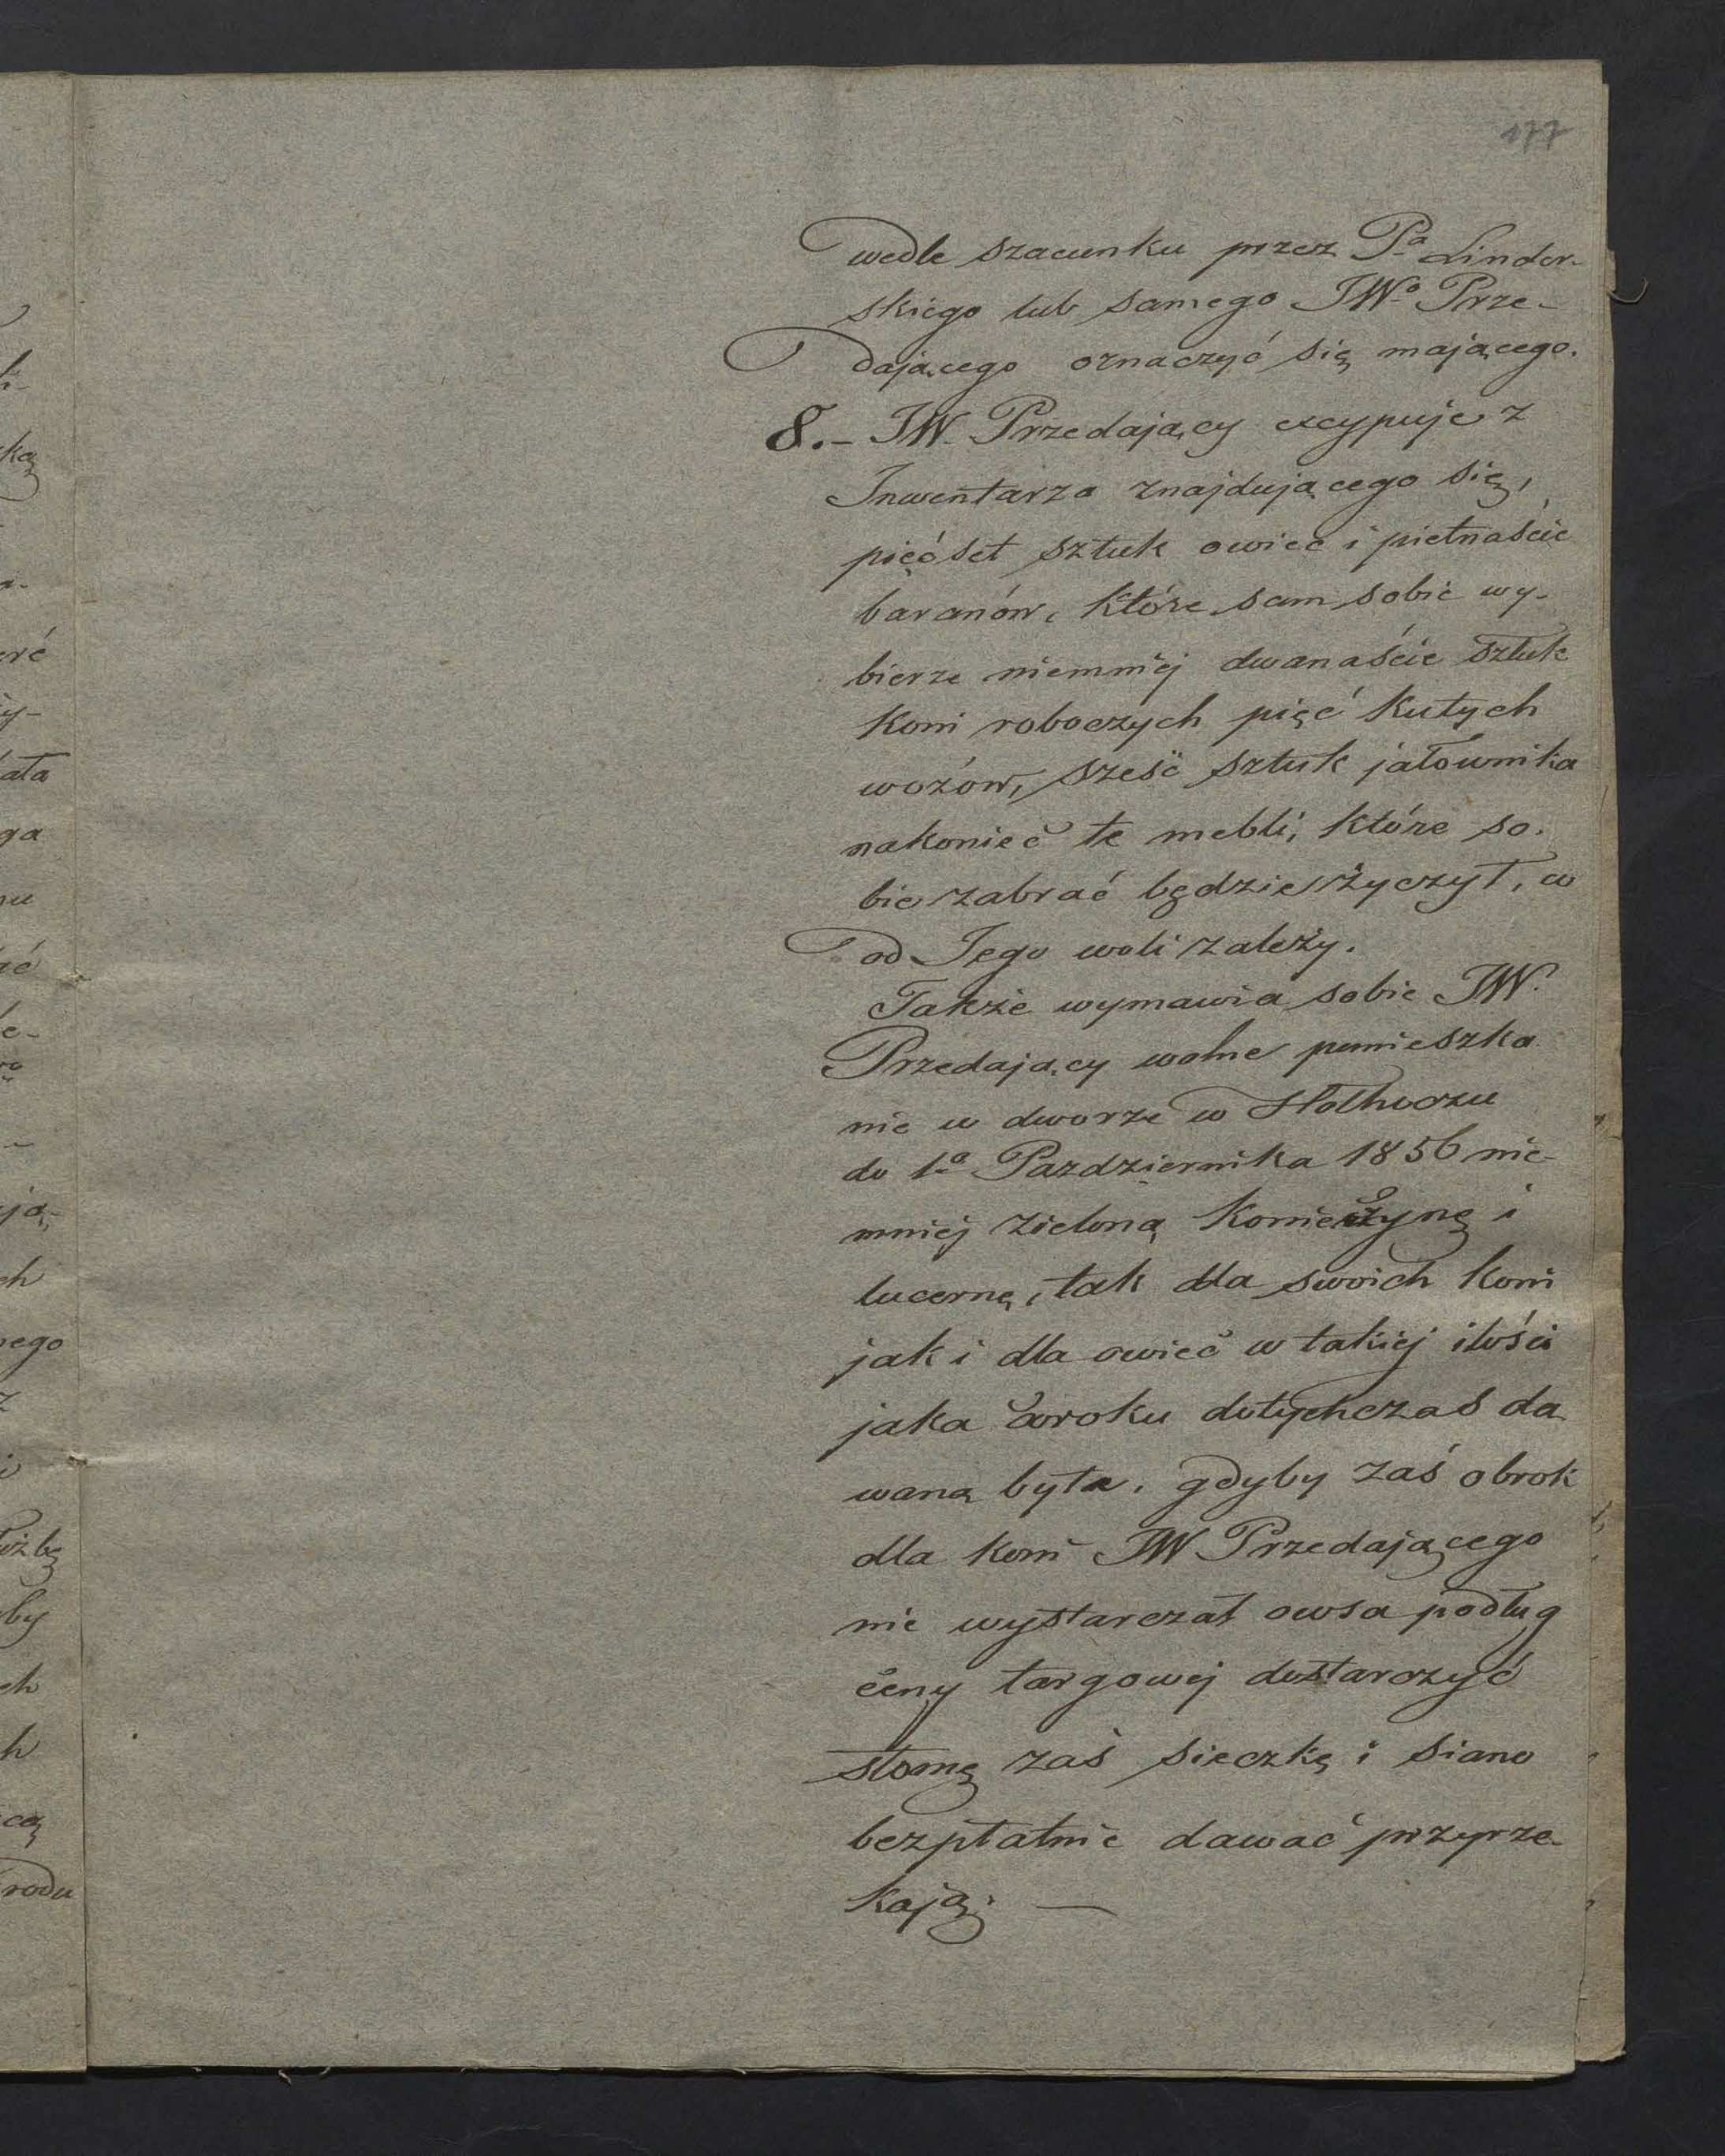 177
wedle szacunku przez Pa Linder-
skiego lub samego JWo Prze-
dającego oznaczyć się mającego.
8.- JW. Przedający excypuje z
Inwentarza znajdującego się,
pięćset sztuk owiec i pietnaście
baranów, które sam sobie wy-
bierze niemniej dwanaście sztuk
koni roboczych pięć kutych
wozów, sześć sztuk jałownika
nakoniec te mebli, które so-
bie zabrać będzie życzył, co
od Jego woli zależy.
Także wymawia sobie JW.
Przedający wolne pomieszka
nie w dworze w Hołhoczu
do 1a Pazdziernika 1856 nie-
mniej zieloną Konieczynę i
lucernę, tak dla swoich koni
jak i dla owiec w takiej ilości
jaka co roku dotychczas da
waną była. gdyby zaś obrok
dla koni JW Przedającego
nie wystarczał owsa podług
ceny targowej dostarczyć
słomę zaś sieczkę i siano
bezpłatnie dawać przyrze-
kają; —